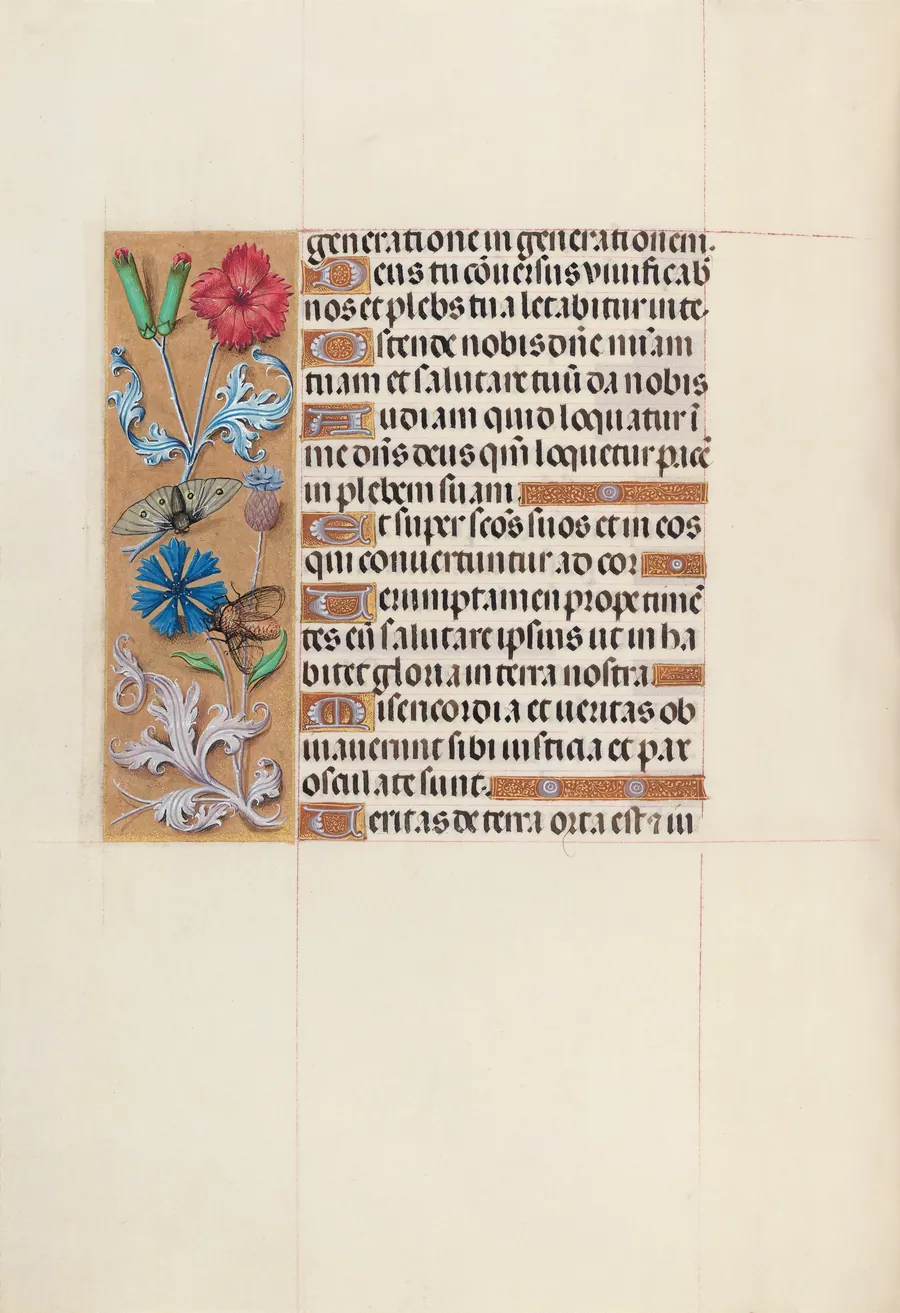 generatione in generationem.
Deus tu cōuersus uiuificab̄
nos et plebs tua letabitur in te.
Ostende nobis dn̄e mīam
tuam et salutare tuū da nobis
Audiam quid loquatur ī
me dn̄s deus qm̄ loquetur pacē
in plebem suam.
Et super sc̄os suos et in eos
qui conuertuntur ad cor
Uerumptamen prope timē
tes eū salutare ipsius ut inha
bitet gloria in terra nostra
Misericordia et ueritas ob
uiauerunt sibi iusticia et pax
osculate sunt.
Ueritas de terra orta est ⁊ iu